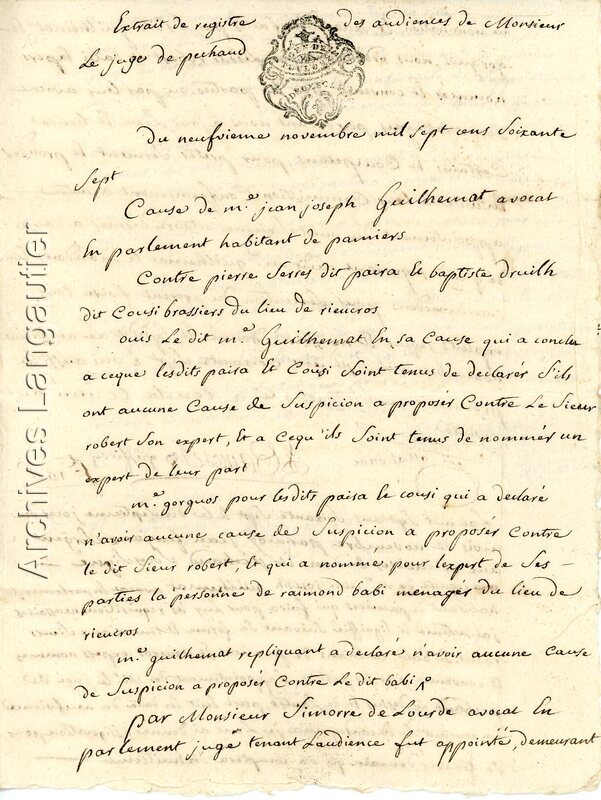 Extrait de registre des audiences de Monsieur
Le juge de pechaud
GEN DE
TOULOUSE
du neufvieme novembre mil sept cens soixante
sept
Cause de m.e jean joseph Guilhemat avocat
En parlement habitant de pamiers
Contre pierre serres dit paisa Et baptiste druilh
dit Cousi brassiers du lieu de rieucros
ouis Le dit m.e Guilhemat En sa Cause qui a conclu
a ceque lesdits paisa Et Cousi Soint tenus de declarér S'ils
ont aucune Cause de Suspicion a proposér Contre Le Sieur
robert Son expert, Et a Cequ'ils Soint tenus de nommér un
expert de leur part
m.e gorguos pour lesdits paisa le cousi qui a declaré
n'avoir aucune cause de Suspicion a proposér Contre
le dit Sieur robert, Et qui a nommé pour l'expert de Ses -
parties la personne de raimond babi menagér du lieu de
rieucros
m.e guilhemat repliquant a declaré n'avoir aucune Cause
de Suspicion a proposér Contre Le dit babi
par Monsieur Simorre de Lourde avocat En
parlement juge tenant Laudience fut appointé, demeurant
Archives Langautier